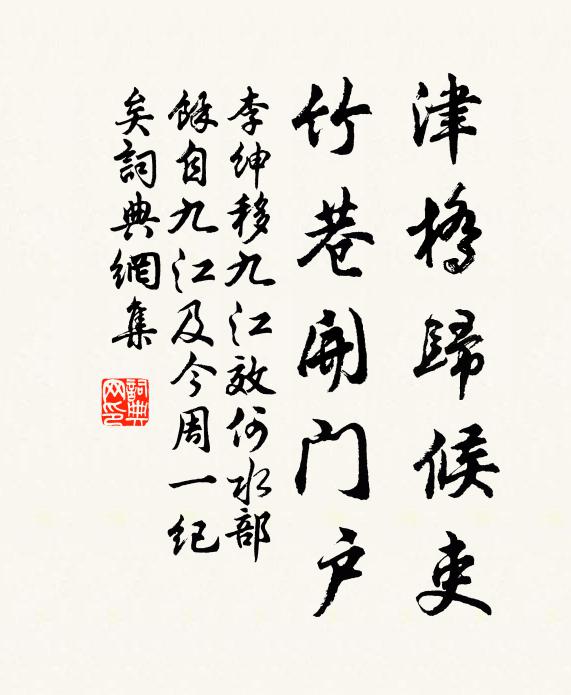 津橋歸候吏
竹巷開門户
李紳移九江效何水部
餘自九江及今周一紀
矣詞典網集
詞典网印